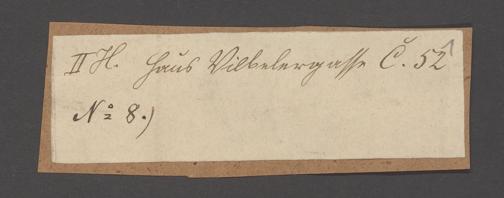 II H. Haus Vilbelergasse C. 52
Nº 8.)